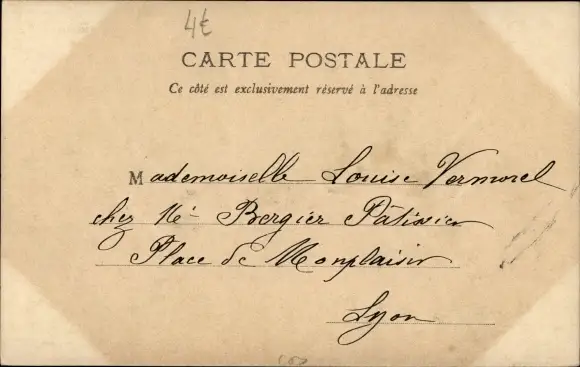 4€
CARTE POSTALE
Ce côté est exclusivement réservé à l'adresse
Mademoiselle Louise Vermorel
chez Bergier Pâtissier
Place de Monplaisir
Lyon